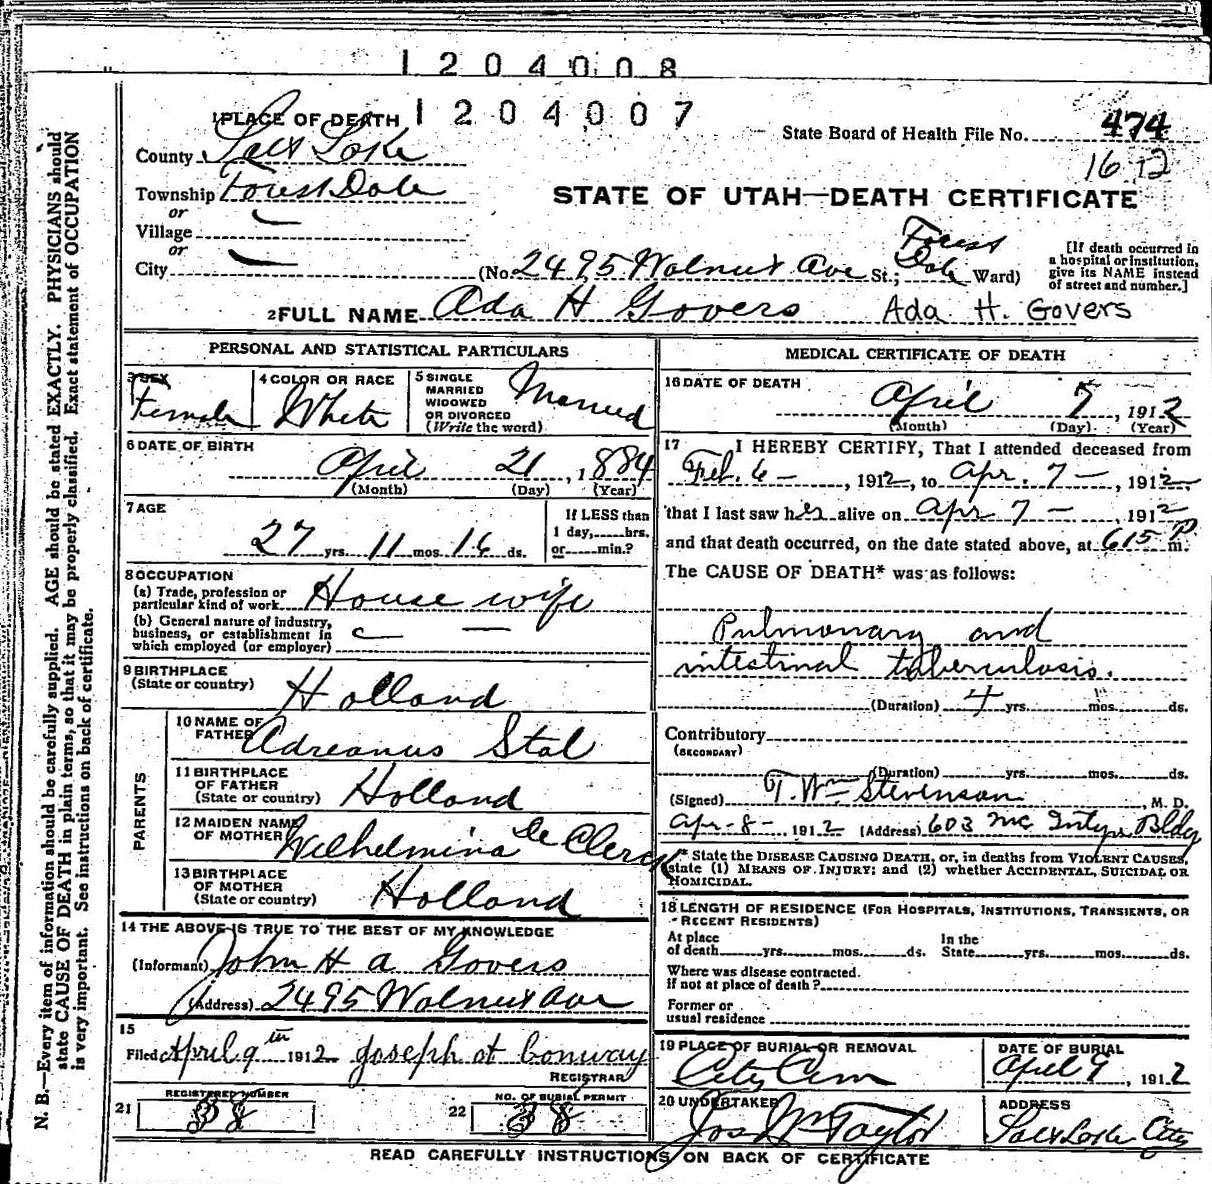 1204008
1204007
1 PLACE OF DEATH
State Board of Health File No. 474
16 12
County Salt Lake
Township Forest Dale
or
Village
or
City
STATE OF UTAH—DEATH CERTIFICATE
(No. 2495 Walnut Ave St.; Forest Dale Ward)
[If death occurred in
a hospital or institution,
give its NAME instead
of street and number.]
2 FULL NAME Ada H Govers Ada H. Govers
PERSONAL AND STATISTICAL PARTICULARS
3 SEX
Female
4 COLOR OR RACE
White
5 SINGLE
MARRIED
WIDOWED
OR DIVORCED
(Write the word)
Married
6 DATE OF BIRTH
April 21, 1884
(Month) (Day) (Year)
7 AGE
27 yrs. 11 mos. 16 ds.
If LESS than
1 day, hrs.
or min.?
8 OCCUPATION
(a) Trade, profession or
particular kind of work House wife
(b) General nature of industry,
business, or establishment in
which employed (or employer)
9 BIRTHPLACE
(State or country) Holland
PARENTS
10 NAME OF
FATHER Adreanus Stal
11 BIRTHPLACE
OF FATHER
(State or country) Holland
12 MAIDEN NAME
OF MOTHER Wilhelmina De Clercq
13 BIRTHPLACE
OF MOTHER
(State or country) Holland
14 THE ABOVE IS TRUE TO THE BEST OF MY KNOWLEDGE
(Informant) John H A Govers
(Address) 2495 Walnut Ave
15
Filed April 9th 1912 Joseph H Conway
REGISTRAR
REGISTERED NUMBER
21 38
NO. OF BURIAL PERMIT
22 38
MEDICAL CERTIFICATE OF DEATH
16 DATE OF DEATH
April 7, 1912
(Month) (Day) (Year)
17 I HEREBY CERTIFY, That I attended deceased from
Feb. 6 —, 1912, to Apr. 7 —, 1912,
that I last saw her alive on Apr 7 — 1912
and that death occurred, on the date stated above, at 615 P m.
The CAUSE OF DEATH* was as follows:
Pulmonary and
intestinal tuberculosis.
(Duration) 4 yrs. mos. ds.
Contributory
(SECONDARY)
(Duration) yrs. mos. ds.
(Signed) T. Wm Stevenson, M. D.
Apr-8-1912 (Address) 603 Mc Intyre Bldg
* State the DISEASE CAUSING DEATH, or, in deaths from VIOLENT CAUSES,
state (1) MEANS OF INJURY; and (2) whether ACCIDENTAL, SUICIDAL OR
HOMICIDAL.
18 LENGTH OF RESIDENCE (FOR HOSPITALS, INSTITUTIONS, TRANSIENTS, OR
RECENT RESIDENTS)
At place
of death yrs. mos. ds.
In the
State yrs. mos. ds.
Where was disease contracted.
if not at place of death?
Former or
usual residence
19 PLACE OF BURIAL OR REMOVAL
City Cem
DATE OF BURIAL
April 9, 1912
20 UNDERTAKER
Jos Wm Taylor
ADDRESS
Salt Lake City
READ CAREFULLY INSTRUCTIONS ON BACK OF CERTIFICATE
N. B.—Every item of information should be carefully supplied. AGE should be stated EXACTLY. PHYSICIANS should
state CAUSE OF DEATH in plain terms, so that it may be properly classified. Exact statement of OCCUPATION
is very important. See instructions on back of certificate.